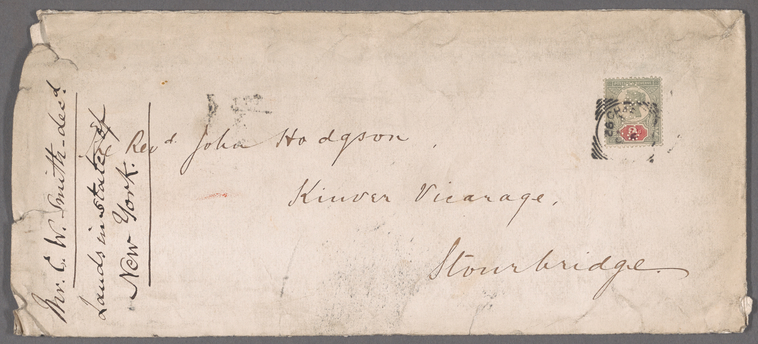 Revd. John Hodgson,
Kinver Vicarage,
Stourbridge.
Mr. C. W. Smith - decd.
Lands in State of
New York.